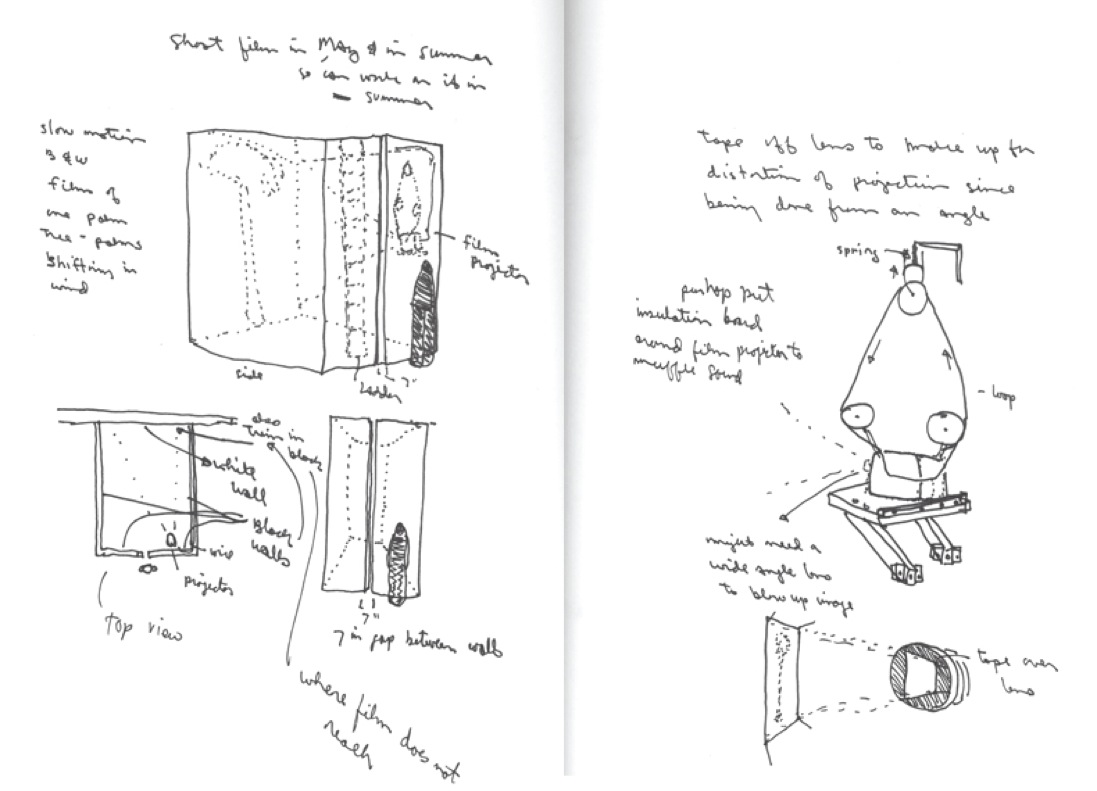 Shoot film in May & in summer
so can work on it in
summer
slow motion
B & W
film of
one palm
tree - palms
shifting in
wind
film
projector
side
ladder
7"
also
trim in
black
white
wall
black
walls
projector
top view
7"
7 in gap between walls
where film does not
reach
tape off lens to make up for
distortion of projection since
being done from an angle
spring
perhap put
insulation board
around film projector to
muffle sound
loop
might need a
wide angle lens
to blow up image
tape over
lens